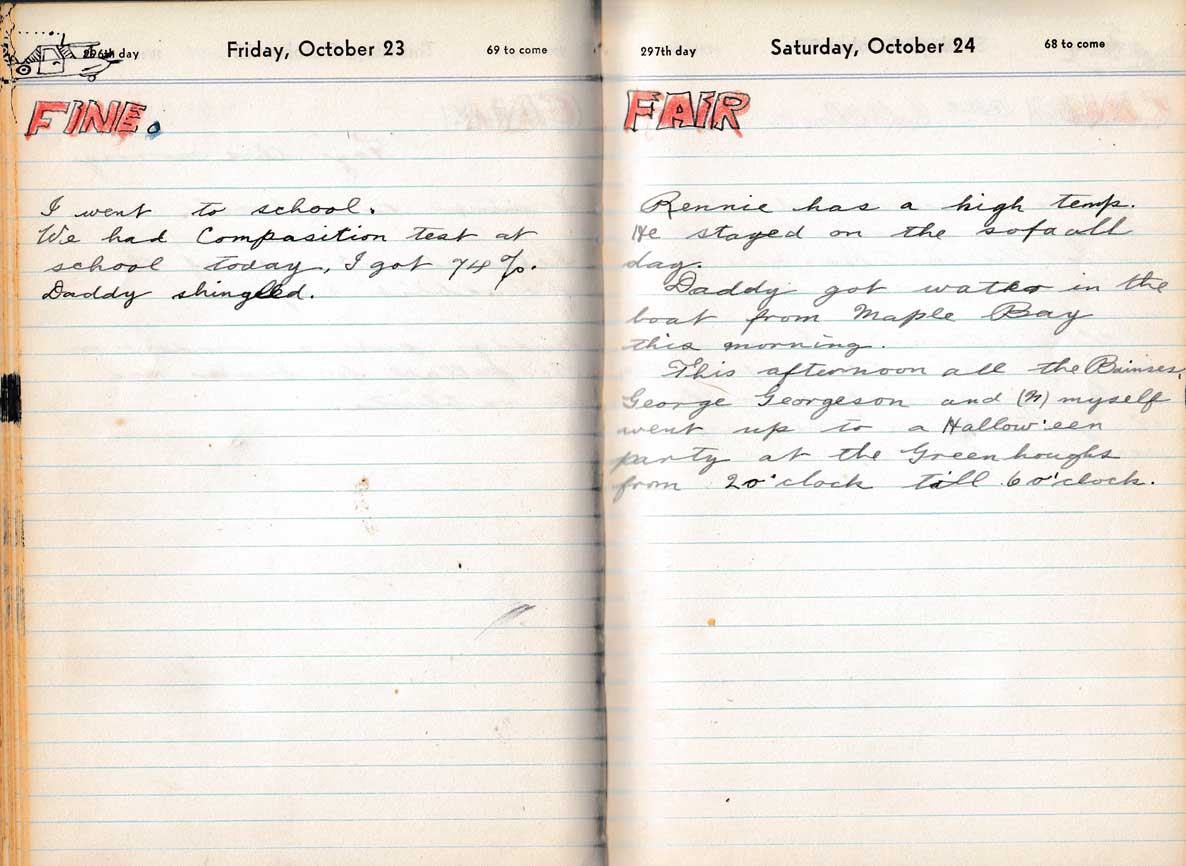 296th day Friday, October 23 69 to come
FINE.
I went to school.
We had Composition test at
school today, I got 74%.
Daddy shingled.
297th day Saturday, October 24 68 to come
FAIR
Rennie has a high temp.
He stayed on the sofa all
day.
Daddy got water in the
boat from Maple Bay
this morning.
This afternoon all the
George Georgeson and myself
went up to a Hallow'een
party at the Greenhoughs
from 2 o'clock till 6 o'clock.